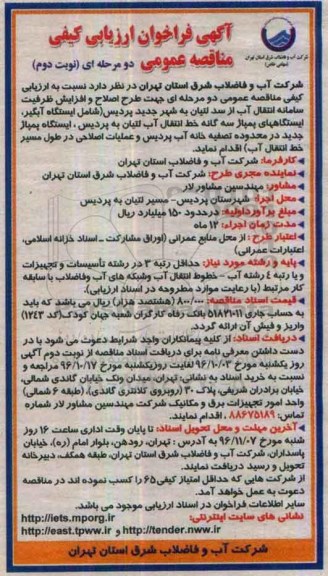 شرکت آب و فاضلاب شرق استان تهران
(سهامی خاص)
آگهی فراخوان ارزیابی کیفی
مناقصه عمومی دو مرحله ای (نوبت دوم)
شرکت آب و فاضلاب شرق استان تهران در نظر دارد نسبت به ارزیابی
کیفی مناقصه عمومی دو مرحله ای جهت طرح اصلاح و افزایش ظرفیت
سامانه انتقال آب از سد لتیان به شهر جدید پردیس(شامل ایستگاه آبگیر،
ایستگاههای پمپاژ سه گانه خط انتقال آب لتیان به پردیس ، ایستگاه پمپاژ
جدید در محدوده تصفیه خانه آب پردیس و عملیات اصلاحی در طول مسیر
خط انتقال آب) اقدام نماید.
کارفرما: شرکت آب و فاضلاب استان تهران
نماینده مجری طرح: شرکت آب و فاضلاب شرق استان تهران
مشاور: مهندسین مشاور لار
محل اجرا: شهرستان پردیس- مسیر لتیان به پردیس
مبلغ برآورداولیه: درحدود ۱۵۰ میلیارد ریال
مدت زمان اجراء: ۱۲ ماه
اعتبار طرح : از محل منابع عمرانی (اوراق مشارکت ـ اسناد خزانه اسلامی،
اعتبارات عمرانی)
پایه و رشته مورد نیاز: حداقل رتبه ۳ در رشته تأسیسات و تجهیزات
و یا رتبه ۴ رشته آب - خطوط انتقال آب وشبکه های آب وفاضلاب با سابقه
کار مرتبط (با رعایت موارد مطروحه در اسناد ارزیابی).
قیمت اسناد مناقصه: ۸۰۰/۰۰۰ (هشتصد هزار) ریال می باشد که باید
به حساب جاری ۵۱۸۲۱۰۱۱ بانک رفاه کارگران شعبه جهان کودک(کد ۱۲۴۳)
واریز و فیش آن ارائه گردد.
دریافت اسناد: از کلیه پیمانکاران واجد شرایط دعوت می شود با در
دست داشتن معرفی نامه برای دریافت اسناد مناقصه از نوبت دوم آگهی
روز یکشنبه مورخ ۹۶/۱۰/۰۳ لغایت روزیکشنبه مورخ ۹۶/۱۰/۱۷ مراجعه و
نسبت به خرید اسناد به نشانی: تهران، میدان ونک خیابان گاندی شمالی،
خیابان برادران شریفی، پلاک ۳۰ (روبروی کلانتری گاندی)، (طبقه ۶ شمالی)
واحد امور تجهیزات برق و مکانیک شرکت مهندسین مشاور لار شماره
تماس: ۸۸۶۷۵۱۸۹ ، اقدام نمایند.
آخرین مهلت و محل تحویل اسناد: تا پایان وقت اداری ساعت ۱۶ روز
شنبه مورخ ۹۶/۱۱/۰۷ به آدرس : تهران، رودهن، بلوار امام (ره)، خیابان
پاسداران، شرکت آب و فاضلاب شرق استان تهران، طبقه همکف، دبیرخانه
تحویل و رسید دریافت نمایند.
از شرکت هایی که حداقل امتیاز کیفی۶۵ را کسب نموده اند در مناقصه
دعوت به عمل خواهد آمد.
سایر اطلاعات فراخوان در اسناد ارزیابی موجود می باشد.
نشانی های سایت اینترنتی: http://iets.mporg.ir
http://tender.nww.ir و http://east.tpww.ir
شرکت آب و فاضلاب شرق استان تهران